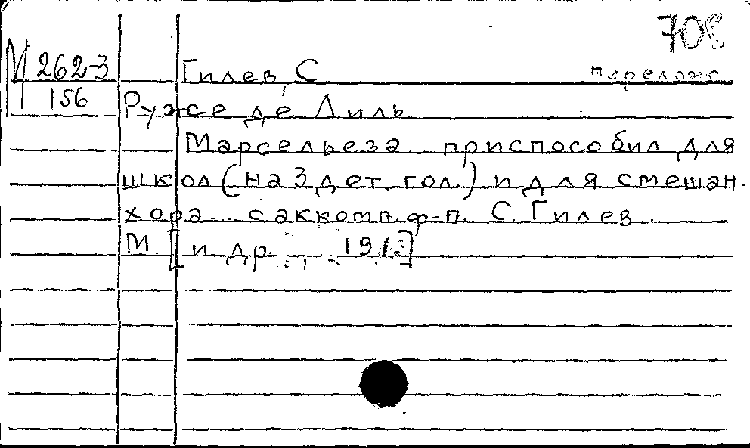 708
М 262-3 Гилев, С перелож.
156 Руже де Лиль
Марсельеза приспособил для
школ (на 3 дет. гол.) и для смешан.
хора с аккомп. ф-п. С. Гилев
М [и др.